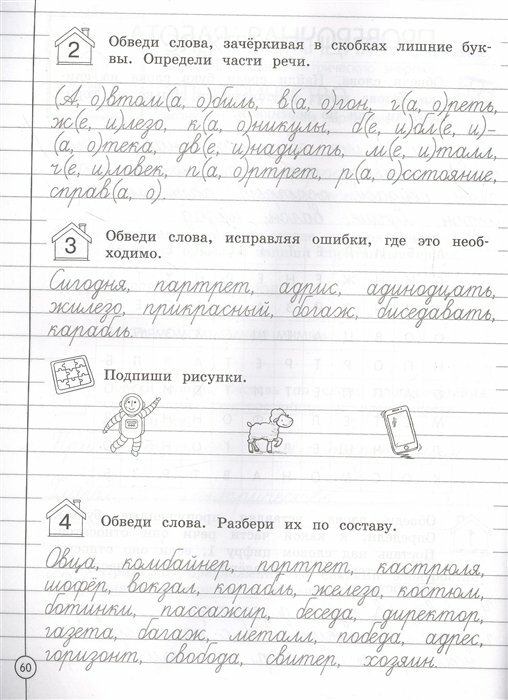 2 Обведи слова, зачёркивая в скобках лишние бук-
вы. Определи части речи.
(А, о)втом(а, о)биль, в(а, о)гон, г(а, о)реть,
ж(е, и)лезо, к(а, о)никулы, б(е, и)бл(е, и)-
(а, о)тека, дв(е, и)надцать, м(е, и)талл,
ч(е, и)ловек, п(а, о)ртрет, р(а, о)сстояние,
справ(а, о).
3 Обведи слова, исправляя ошибки, где это необ-
ходимо.
Сигодня, партрет, адрис, адинодцать,
жилезо, прикрасный, богаж, биседавать,
карабль.
Подпиши рисунки.
4 Обведи слова. Разбери их по составу.
Овца, комбайнер, портрет, кастрюля,
шофёр, вокзал, корабль, железо, костюм,
ботинки, пассажир, беседа, директор,
газета, багаж, металл, победа, адрес,
горизонт, свобода, свитер, хозяин.
60